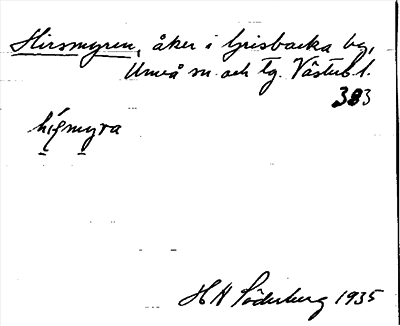 Hirsmyren, åker i Grisbacka by,
Umeå sn. och tg. Västerb. l.
383
hi̯ṣmyra
H H Söderberg 1935